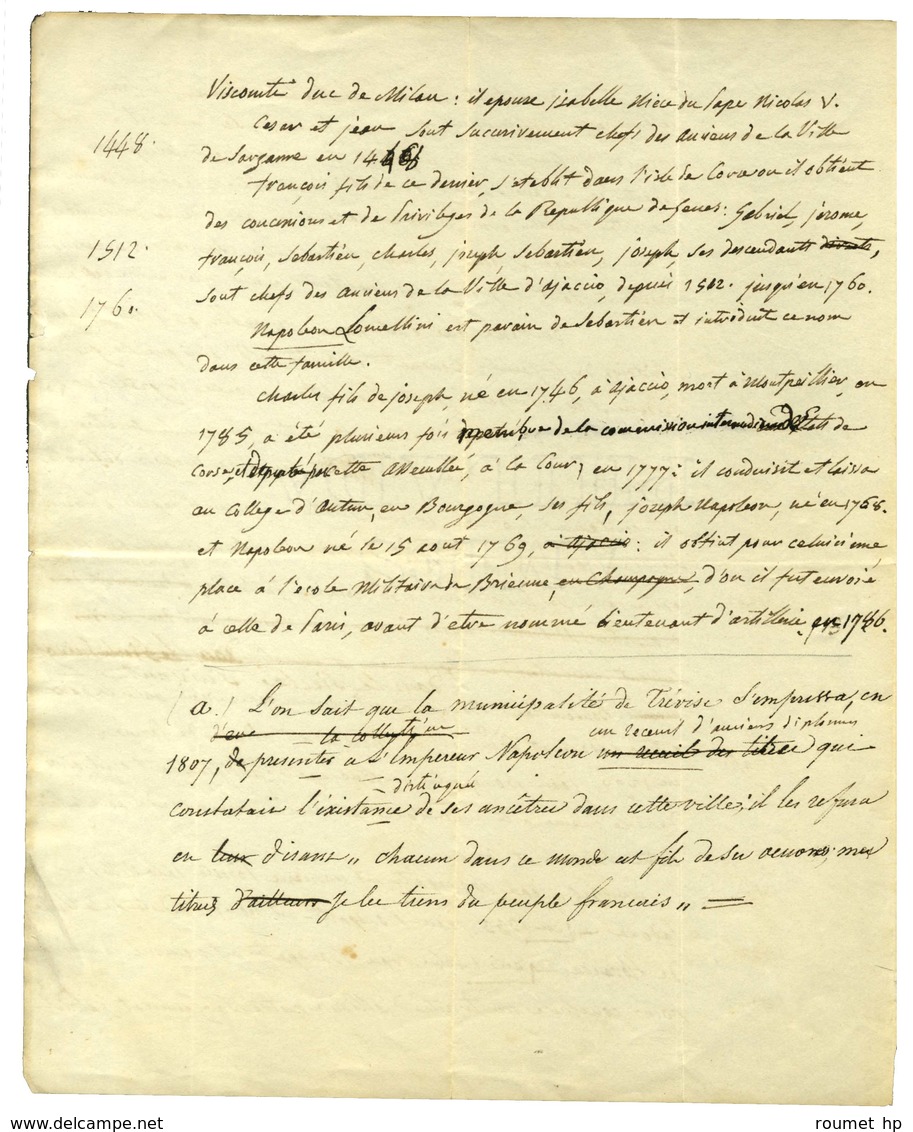 Viscomti duc de Milan : il epouse jsabelle Nièce du Pape Nicolas V.
Cesar et jean sont successivement chefs des anciens de la Ville
1448.
de Sarzanne en 1448
François fils de ce dernier, s'etablit dans l'isle de Corse ou il obtient
des concessions et de Privileges de la Republique de Genes : Gabriel, jerome,
1512.
françois, Sebastien, charles, joseph, Sebastien, joseph, ses descendants directs,
1760.
sont chefs des anciens de la Ville d'ajaccio, depuis 1512. jusqu'en 1760.
Napoleon Lomellini est parain de Sebastien et introduit ce nom
dans cette famille.
Charles fils de joseph, né en 1746, à ajaccio, mort à Montpellier, en
1785, a été plusieurs fois de la commission Etats de
Corse, et deputé par cette assemblée, à la Cour, en 1777 : il conduisit et laissa
au College d'Autun, en Bourgogne, ses fils, joseph Napoleon, né en 1768.
et Napoleon né le 15 aout 1769, à ajaccio : il obtint pour celui ci une
place à l'ecole Militaire de Brienne, en Champagne, d'ou il fut envoié
à celle de Paris, avant d'etre nommé Lieutenant d'artillerie en 1786.
(a.) L'on sait que la municipalité de Trévise s'empressa, en
la collection un recueil d'anciens diplomes
1807, de presenter a L'Empereur Napoleon un recueil des titres qui
distingué
constatait l'existance de ses ancêtres dans cette ville ; il les refusa
en leur disant „ chacun dans ce monde est fils de ses oeuvres ; mes
titres d'ailleurs Je les tiens du peuple francais „ =
roumet hp
www.delcampe.net